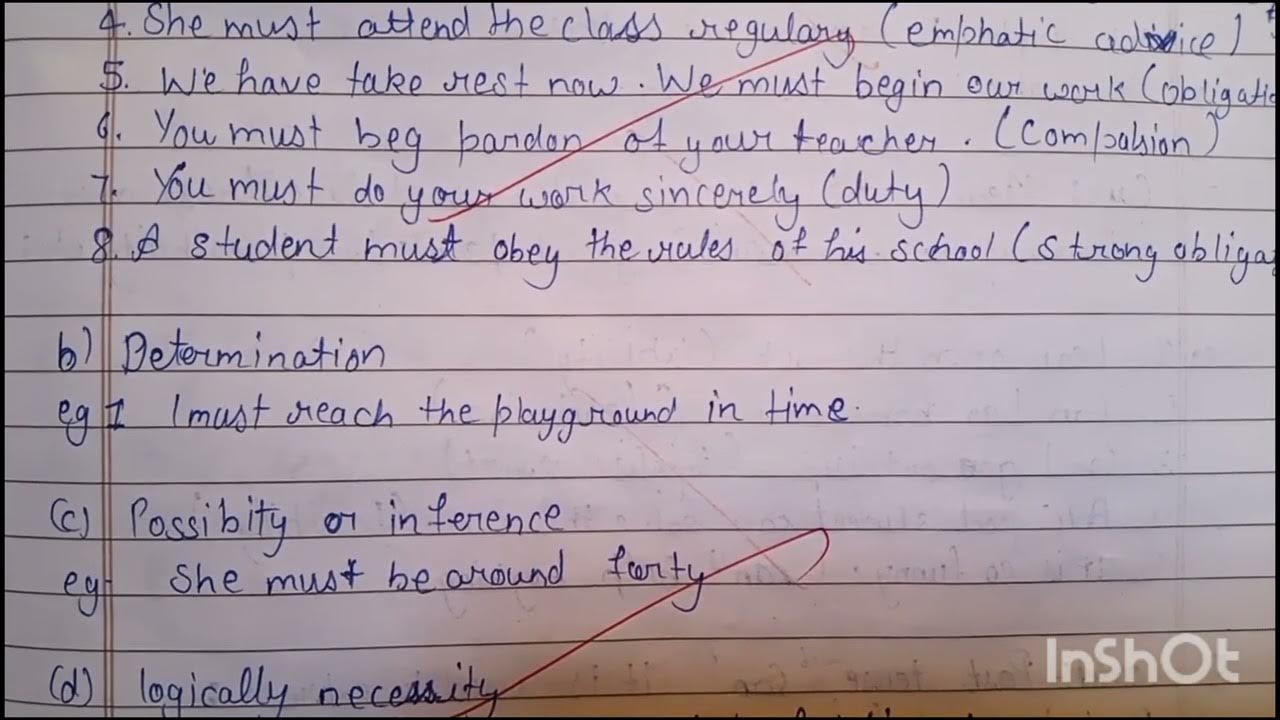 4. She must attend the class regulary (emphatic advice)
5. We have take rest now. We must begin our work (obligatio
6. You must beg pardon of your teacher. (Compalsion)
7. You must do your work sincerely (duty)
8. A student must obey the rules of his school (strong obliga
b) Determination
eg I must reach the playground in time.
(c) Possibity or inference
eg She must be around forty
(d) logically necessity
InShOt